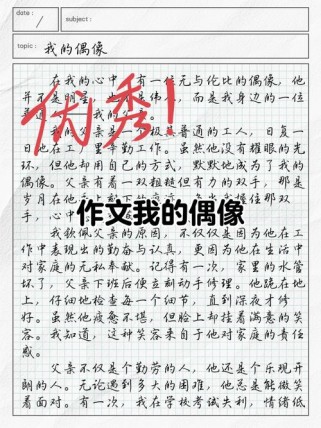 date :
subject :
topic : 我的偶像
在我的心中，有一位无与伦比的偶像，他
并不是明星，也不是伟人，而是我身边的一位
优秀！
我的父亲是一个极其普通的工人，日复一
日地在工厂里辛勤工作。虽然他没有耀眼的光
环，但他却用自己的方式，默默地成为了我的
偶像。父亲有着一双粗糙但有力的双手，那是
岁月在他
手，心中
作文我的偶像
我钦佩父亲的原因，不仅仅是因为他在工
作中表现出的勤奋与认真，更因为他在生活中
对家庭的无私奉献。记得有一次，家里的水管
坏了，父亲下班后便立刻动手修理。他跪在地
上，仔细地检查每一个细节，直到深夜才修
好。虽然他疲惫不堪，但脸上却挂着满意的笑
容。我知道，这种笑容来自于他对家庭的责任
感。
父亲不仅是个勤劳的人，他还是个乐观开
朗的人。无论遇到多大的困难，他总是能微笑
着面对。有一次，我在学校考试失利，情绪低